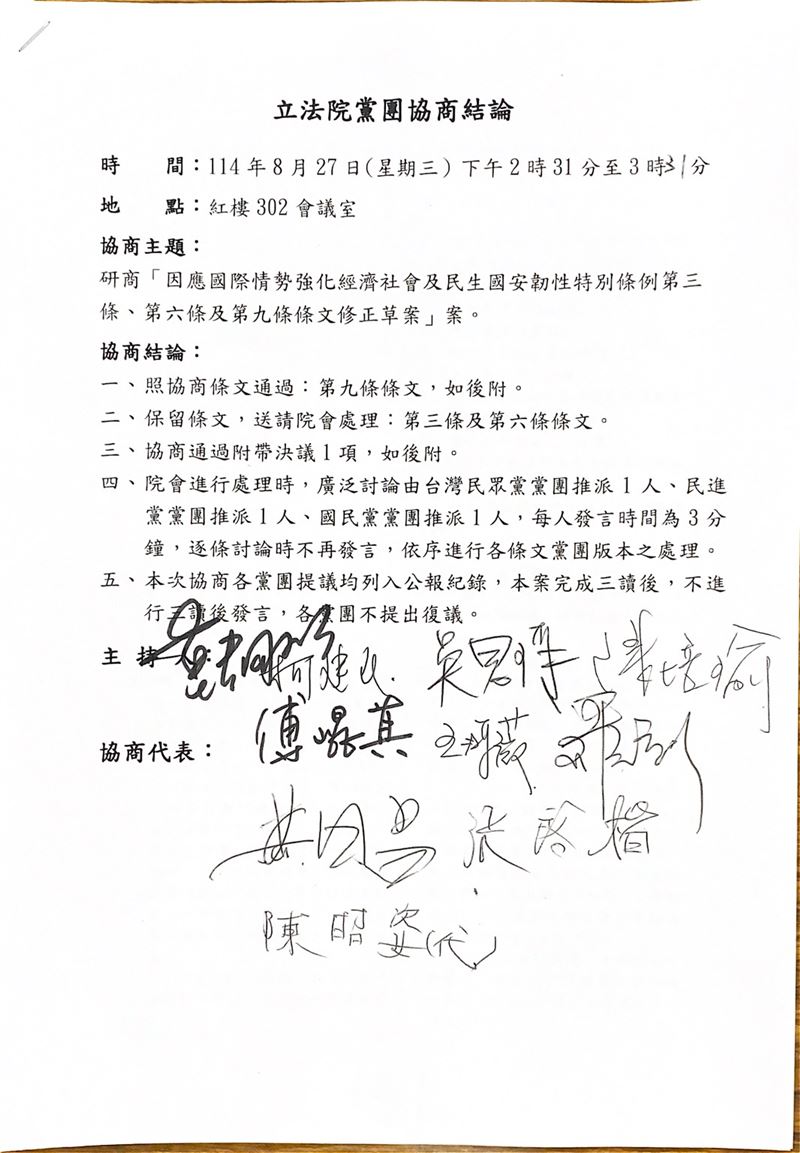 立法院黨團協商結論
時　　間：114年8月27日(星期三)下午2時31分至3時31分
地　　點：紅樓302會議室
協商主題：
研商「因應國際情勢強化經濟社會及民生國安韌性特別條例第三
條、第六條及第九條條文修正草案」案。
協商結論：
一、照協商條文通過：第九條條文，如後附。
二、保留條文，送請院會處理：第三條及第六條條文。
三、協商通過附帶決議1項，如後附。
四、院會進行處理時，廣泛討論由台灣民眾黨黨團推派1人、民進
黨黨團推派1人、國民黨黨團推派1人，每人發言時間為3分
鐘，逐條討論時不再發言，依序進行各條文黨團版本之處理。
五、本次協商各黨團提議均列入公報紀錄，本案完成三讀後，不進
行三讀後發言，各黨團不提出復議。
主持人： 柯建民 吳思瑤 陳培瑜
協商代表： 傅崐萁
黃國昌 張啓楷
陳昭姿(代)